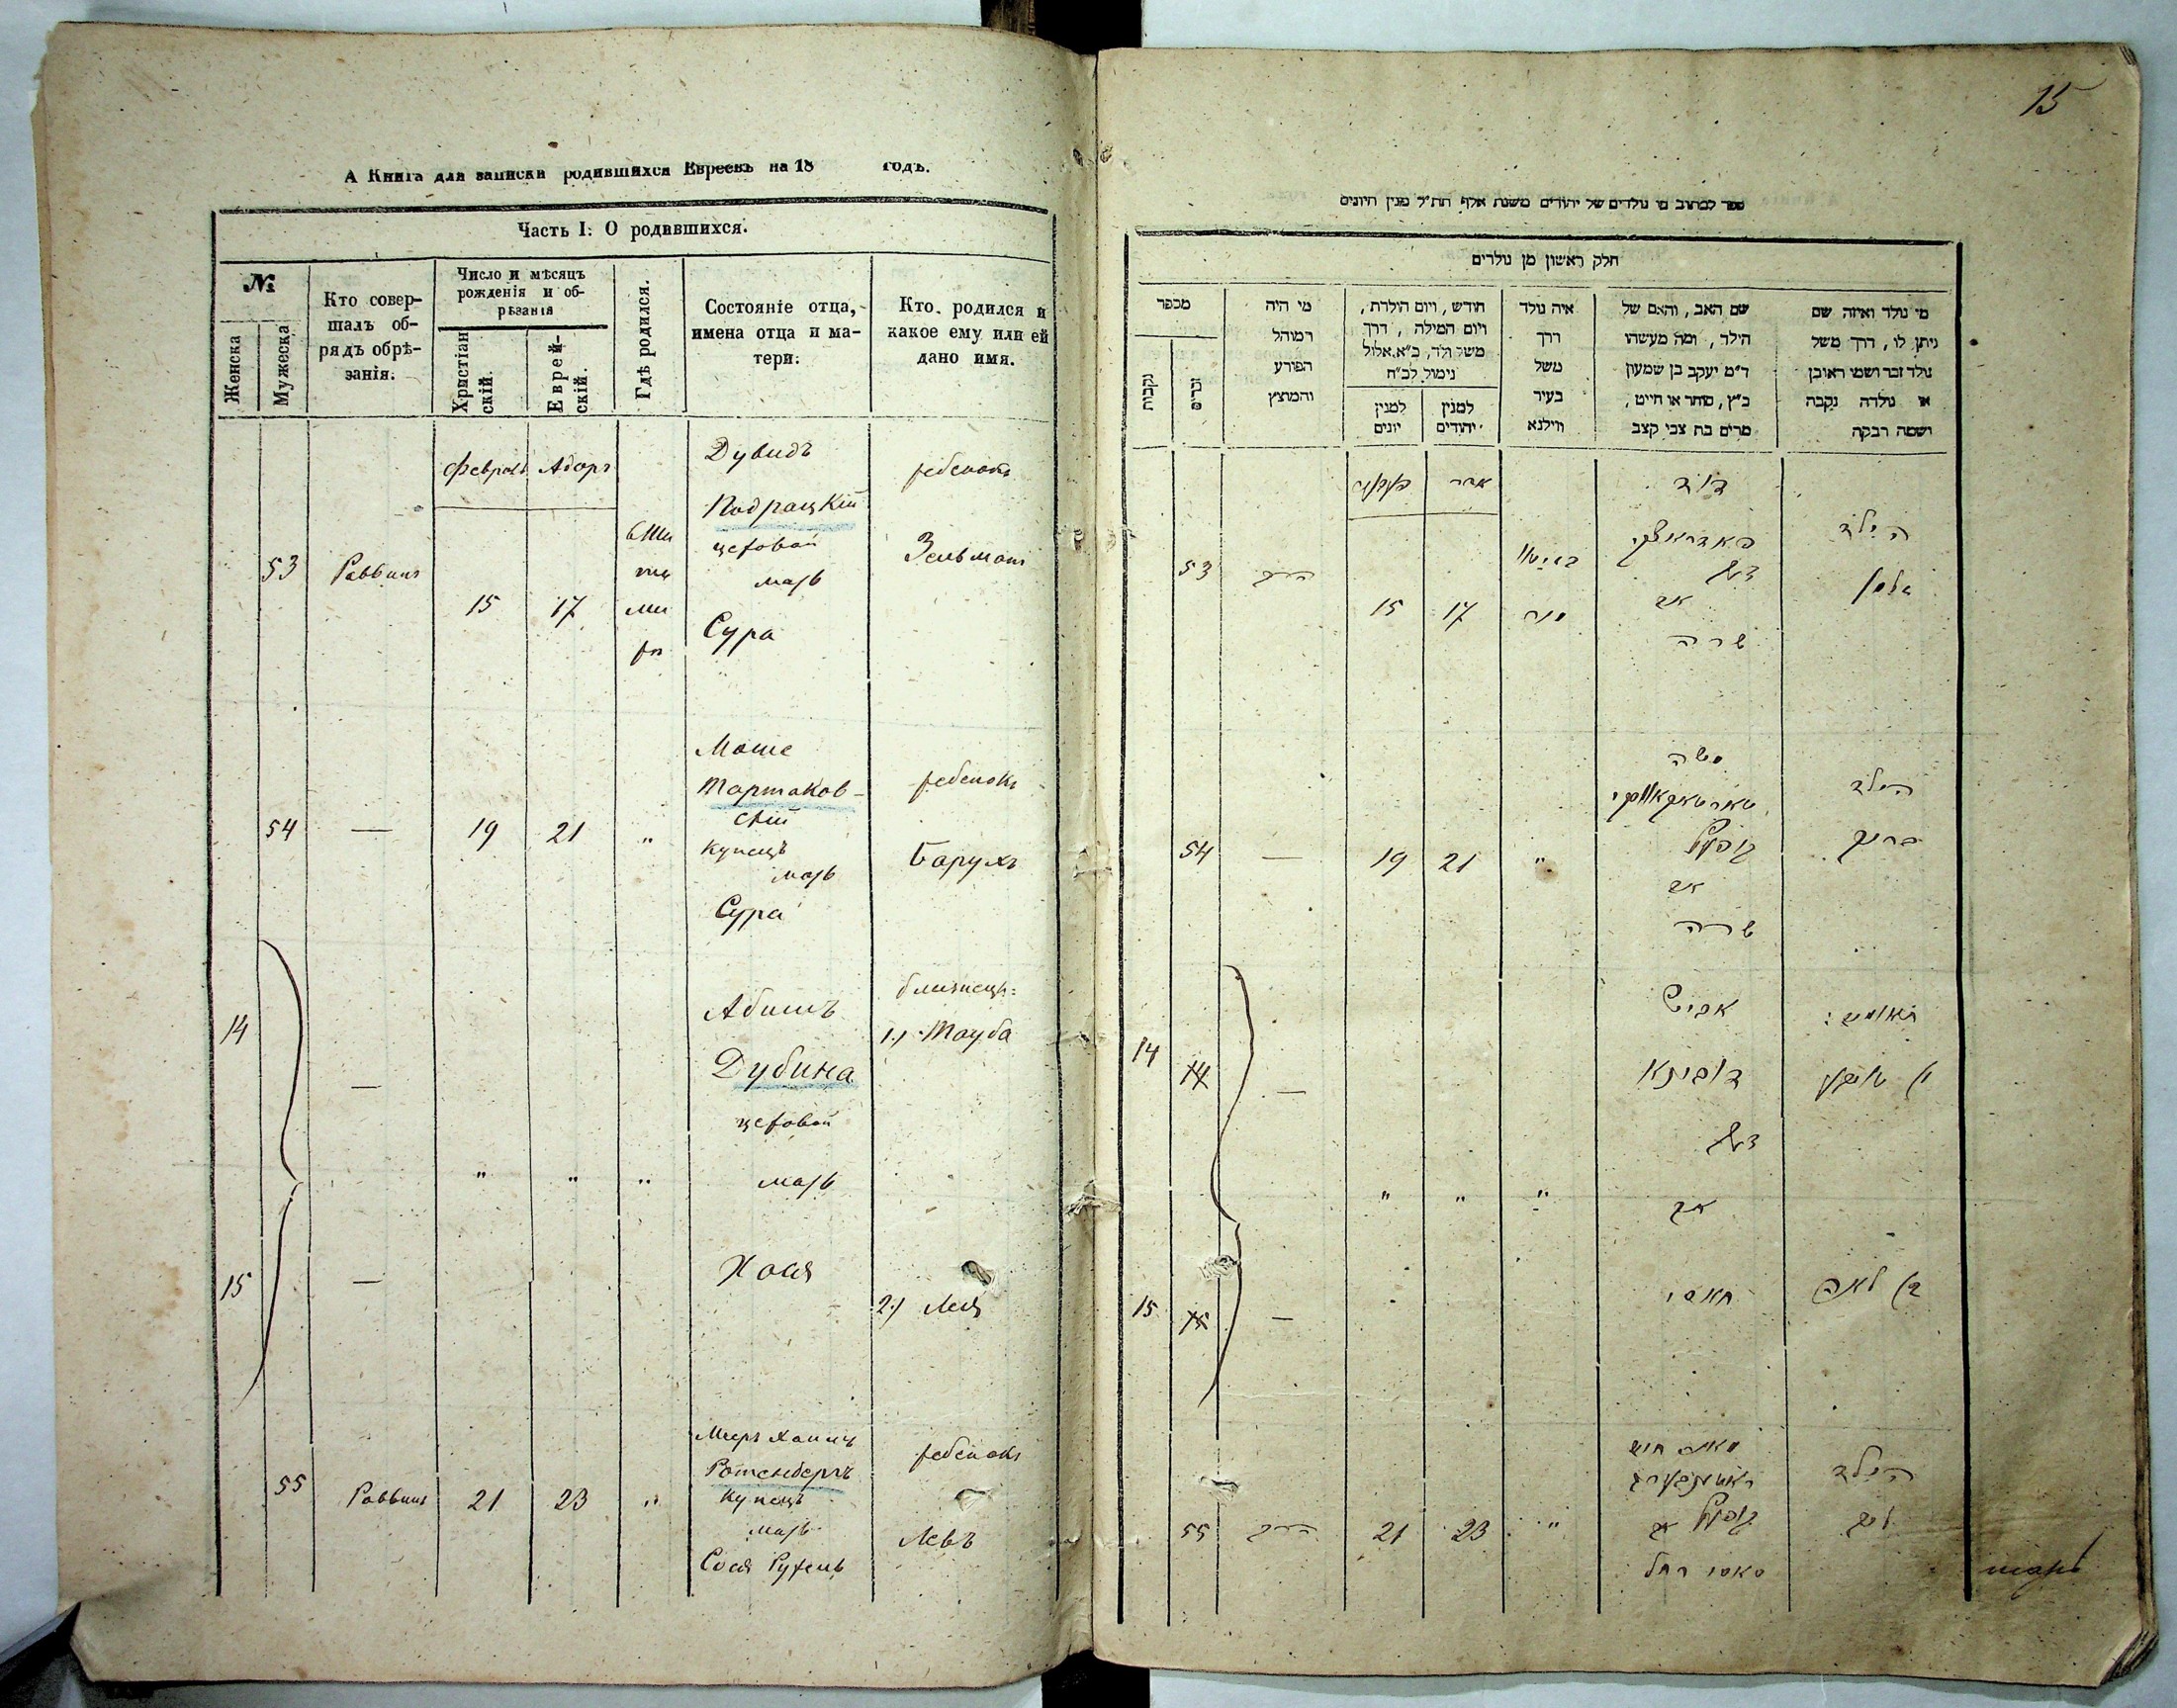 А Книга для записки родившихся Евреевъ на 18 годъ.
Часть I: О родившихся.
№
Женска
Мужеска
Кто совер-
шалъ об-
рядъ обрѣ-
занія.
Число и мѣсяцъ
рожденія и об-
рѣзанія
Христіан
скій.
Еврей-
скій.
Гдѣ родился.
Состояніе отца,
имена отца и ма-
тери:
Кто родился и
какое ему или ей
дано имя.
Февраль Адаръ
53 Раввинъ
15 17
Дувидъ
Подрацкій
цеховой
мать
Сура
ребенокъ
Зельманъ
54 — 19 21 "
Моше
Тартаков-
скій
купецъ
мать
Сура
ребенокъ
Барухъ
14 —
" " "
Абишъ
Дубина
цеховой
мать
Хося
близнецы:
1.) Тауба
15 —
2.) Лея
55 Раввинъ 21 23 "
Мееръ Хаимъ
Ротенбергъ
купецъ
мать
Сося Рухель
ребенокъ
Левъ
15
ספר לכתוב מי נולדים של יהודים משנת אלף תת״ל מנין היונים
חלק ראשון מן נולדים
מספר
נקבות
זכרים
מי היה
המוהל
הפורע
והמוצץ
חודש, ויום הולדת,
ויום המילה, דרך
משל ולד, כ״א אלול
נימול לכ״ח
למנין
יונים
למנין
יהודים
איה נולד
דרך
משל
בעיר
ווילנא
שם האב, והאם של
הילד, ומה מעשהו
ד״מ יעקב בן שמעון
כ״ץ, סוחר או חייט,
מרים בת צבי קצב
מי נולד ואיזה שם
ניתן לו, דרך משל
נולד זכר ושמו ראובן
או נולדה נקבה
ושמה רבקה
אדר
53 הרב 15 17
דוד
פאדראצקי
אם
שרה
הילד
זלמן
54 — 19 21 "
משה
טארטאקאווסקי
אם
שרה
הילד
ברוך
14 14 —
" " "
אביש
דובינא
אם
חאסי
תאומים:
1) טויבע
15 15 —
2) לאה
55 הרב 21 23 "
מאיר חיים
ראטענבערג
אם
סאסי רחל
הילד
ליב